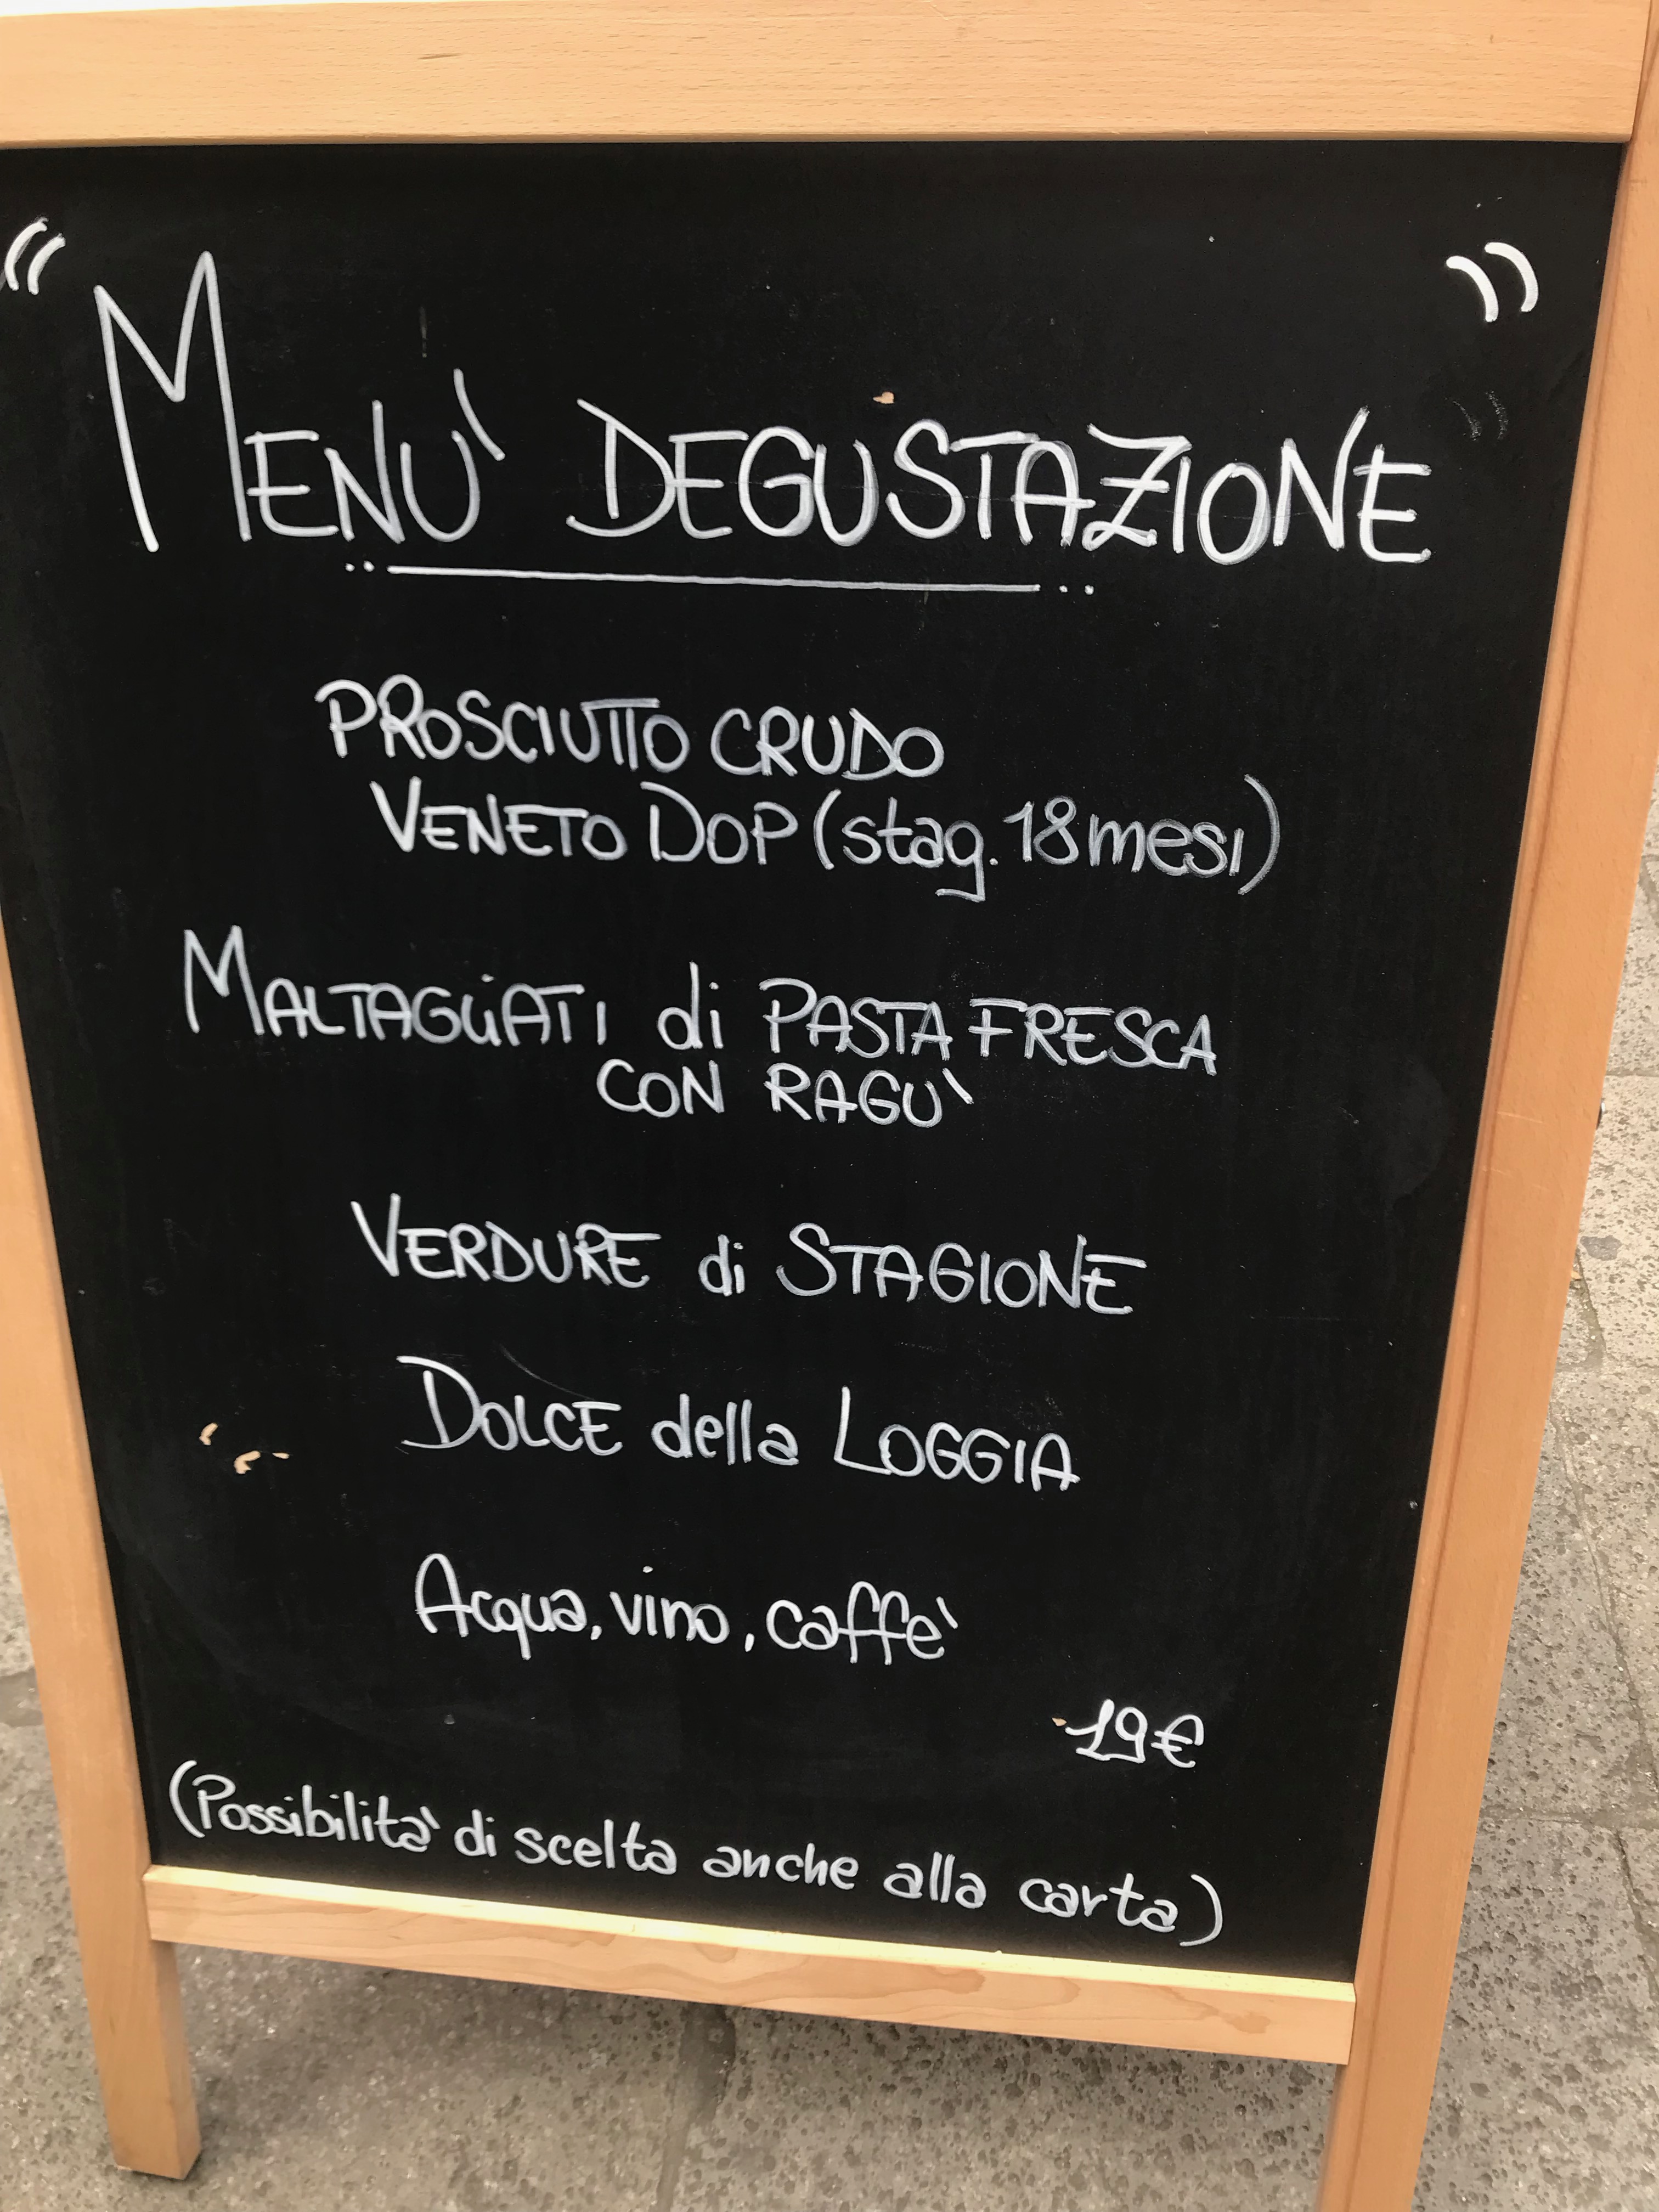 “MENU' DEGUSTAZIONE”
PROSCIUTTO CRUDO
VENETO DOP (stag. 18 mesi)
MALTAGLIATI di PASTA FRESCA
CON RAGU'
VERDURE di STAGIONE
DOLCE della LOGGIA
Acqua, vino, caffe'
19€
(Possibilita' di scelta anche alla carta)